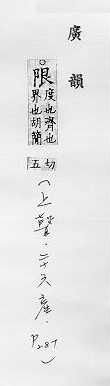 廣韻
○限度也齊也界也胡簡切五
（上聲．二十六產．P.287）